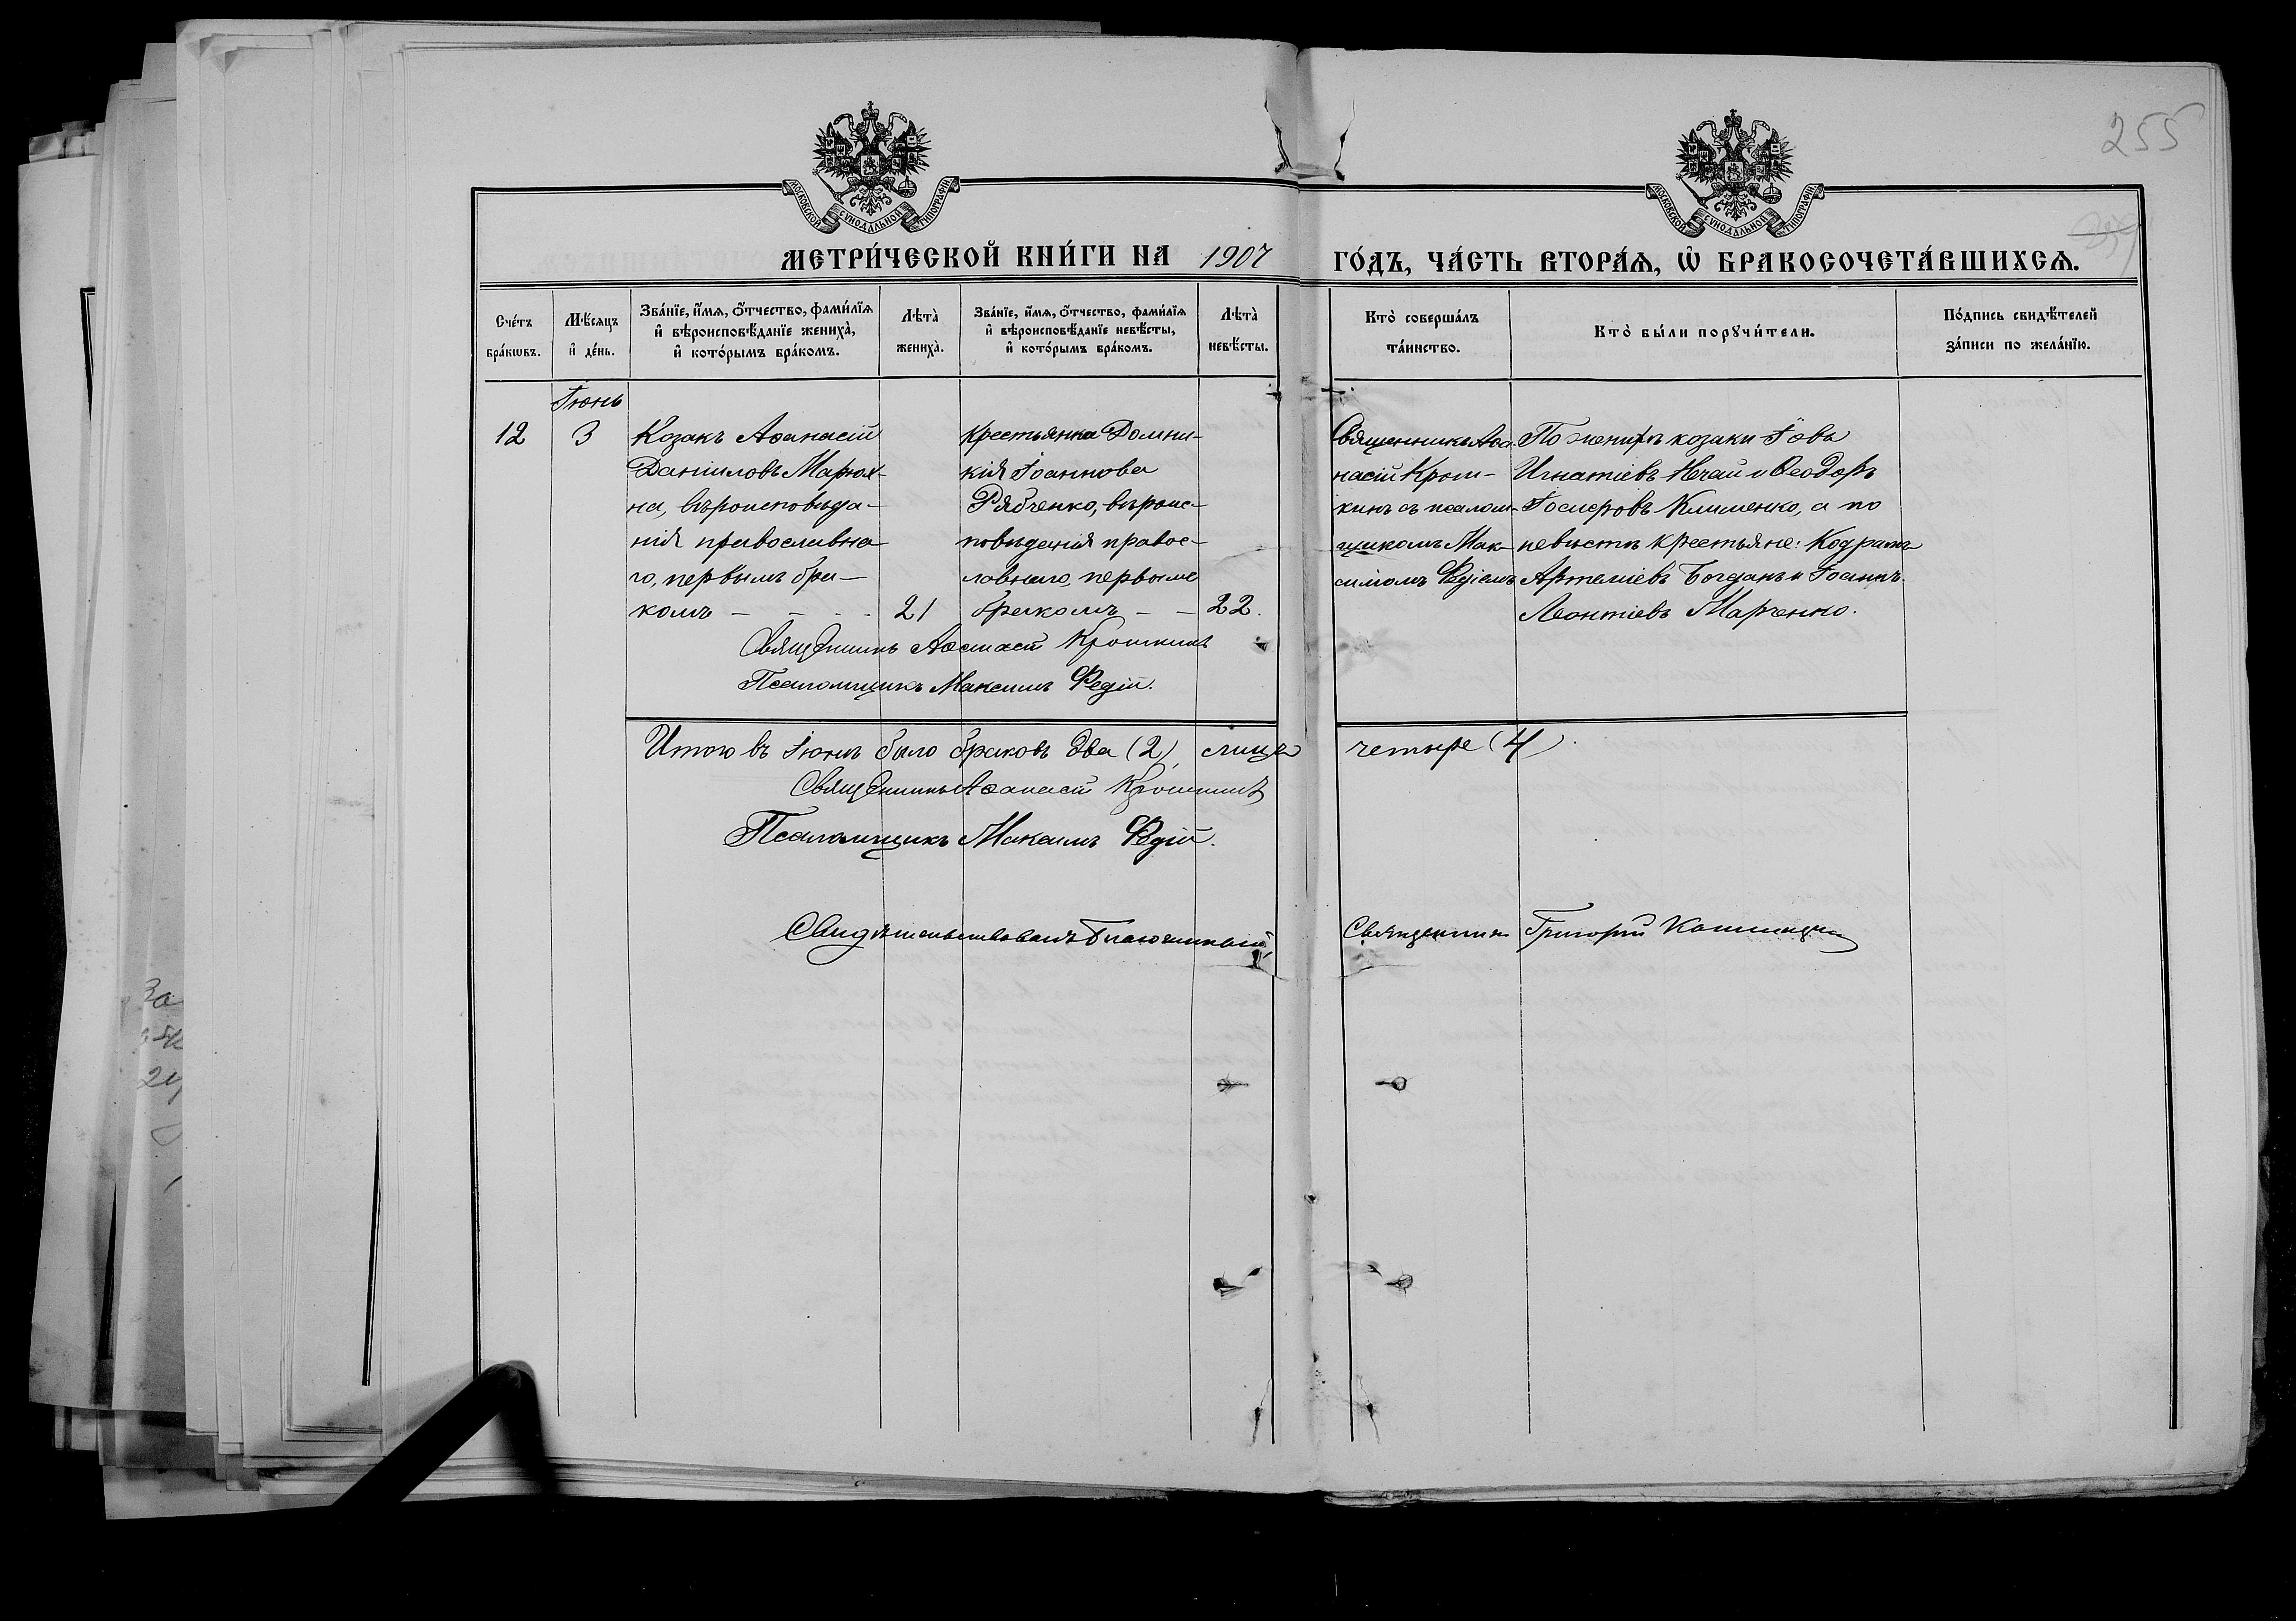 255
МОСКОВСКОЙ СУНОДАЛЬНОЙ ТИПОГРАФІИ
МОСКОВСКОЙ СУНОДАЛЬНОЙ ТИПОГРАФІИ
МЕТРИ́ЧЕСКОЙ КНИ́ГИ НА 1907 ГО́ДЪ, ЧА́СТЬ ВТОРА́Ѧ, Ѿ БРАКОСОЧЕТА́ВШИХСѦ.
Сче́тъ бра́кѡвъ.
Мѣ́сяцъ и҆ де́нь.
Зва́нїе, и҆́мѧ, ѻ҆́тчество, фами́лїѧ и҆ вѣроисповѣ́данїе жениха̀, и҆ кото́рымъ бра́комъ.
Лѣта̀ жениха̀.
Зва́нїе, и҆́мѧ, ѻ҆́тчество, фами́лїѧ и҆ вѣроисповѣ́данїе невѣ́сты, и҆ кото́рымъ бра́комъ.
Лѣта̀ невѣ́сты.
Кто̀ соверша́лъ та́инство.
Кто̀ бы́ли порꙋчи́тели.
По́дпись свидѣ́телей за́писи по жела́нїю.
Іюнь
12
3
Козакъ Аѳанасій
Даніиловъ Марюх-
на, вѣроисповѣда-
нія православна-
го, первымъ бра-
комъ - - - -
21
Крестьянка Домни-
кія Іоаннова
Рябченко, вѣроис-
повѣданія правос-
лавнаго, первымъ
бракомъ - -
22.
Священникъ Аѳа-
насій Крош-
кинъ съ псалом-
щикомъ Мак-
симомъ Ѳедіемъ
По женихѣ козаки Іовъ
Игнатіевъ Нечай и Ѳеодоръ
Іосифовъ Клименко, а по
невѣстѣ крестьяне: Кодратъ
Артеміевъ Богданъ и Іоаннъ
Леонтіевъ Марченко.
Священникъ Аѳанасій Крошкинъ
Псаломщикъ Максимъ Ѳедій.
Итого въ Іюнѣ было браковъ два (2), лица четыре (4).
Священникъ Аѳанасій Крошкинъ
Псаломщикъ Максимъ Ѳедій.
Свидѣтельствовалъ Благочинный, Священникъ Григорій
За
24